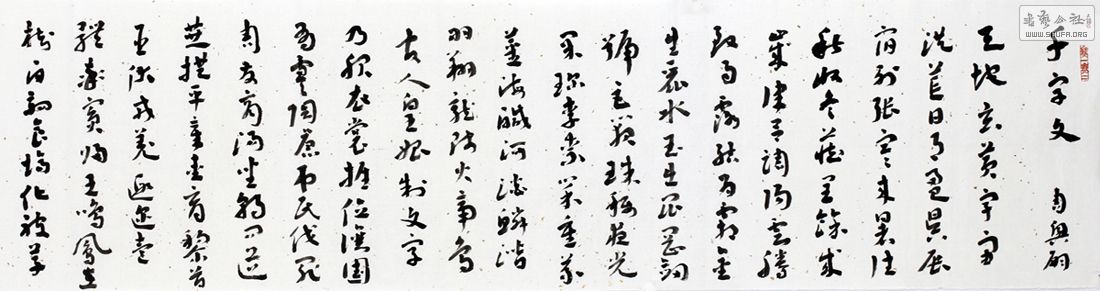 千字文 周興嗣
天地玄黃宇宙
洪荒日月盈昃辰
宿列張寒來暑往
秋收冬藏閏餘成
歲律呂調陽雲騰
致雨露結為霜金
生麗水玉出崑岡劍
號巨闕珠稱夜光
果珍李柰菜重芥
薑海鹹河淡鱗潛
羽翔龍師火帝鳥
官人皇始制文字
乃服衣裳推位讓國
有虞陶唐弔民伐罪
周發商湯坐朝問道
垂拱平章愛育黎首
臣伏戎羌遐邇壹
體率賓歸王鳴鳳在
樹白駒食場化被草
書藝公社
WWW.SHUFA.ORG